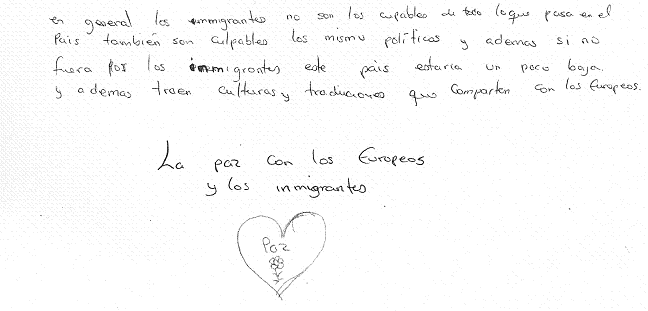 en general los inmigrantes no son los cupables de todo loque pasa en el
Pais también son culpables los mismo políticos y ademas si no
fuera por los inmigrantes este pais estaria un poco bajo.
y ademas traen culturas y traduciones que comparten con los Europeos.
La paz con los Europeos
y los inmigrantes
Paz